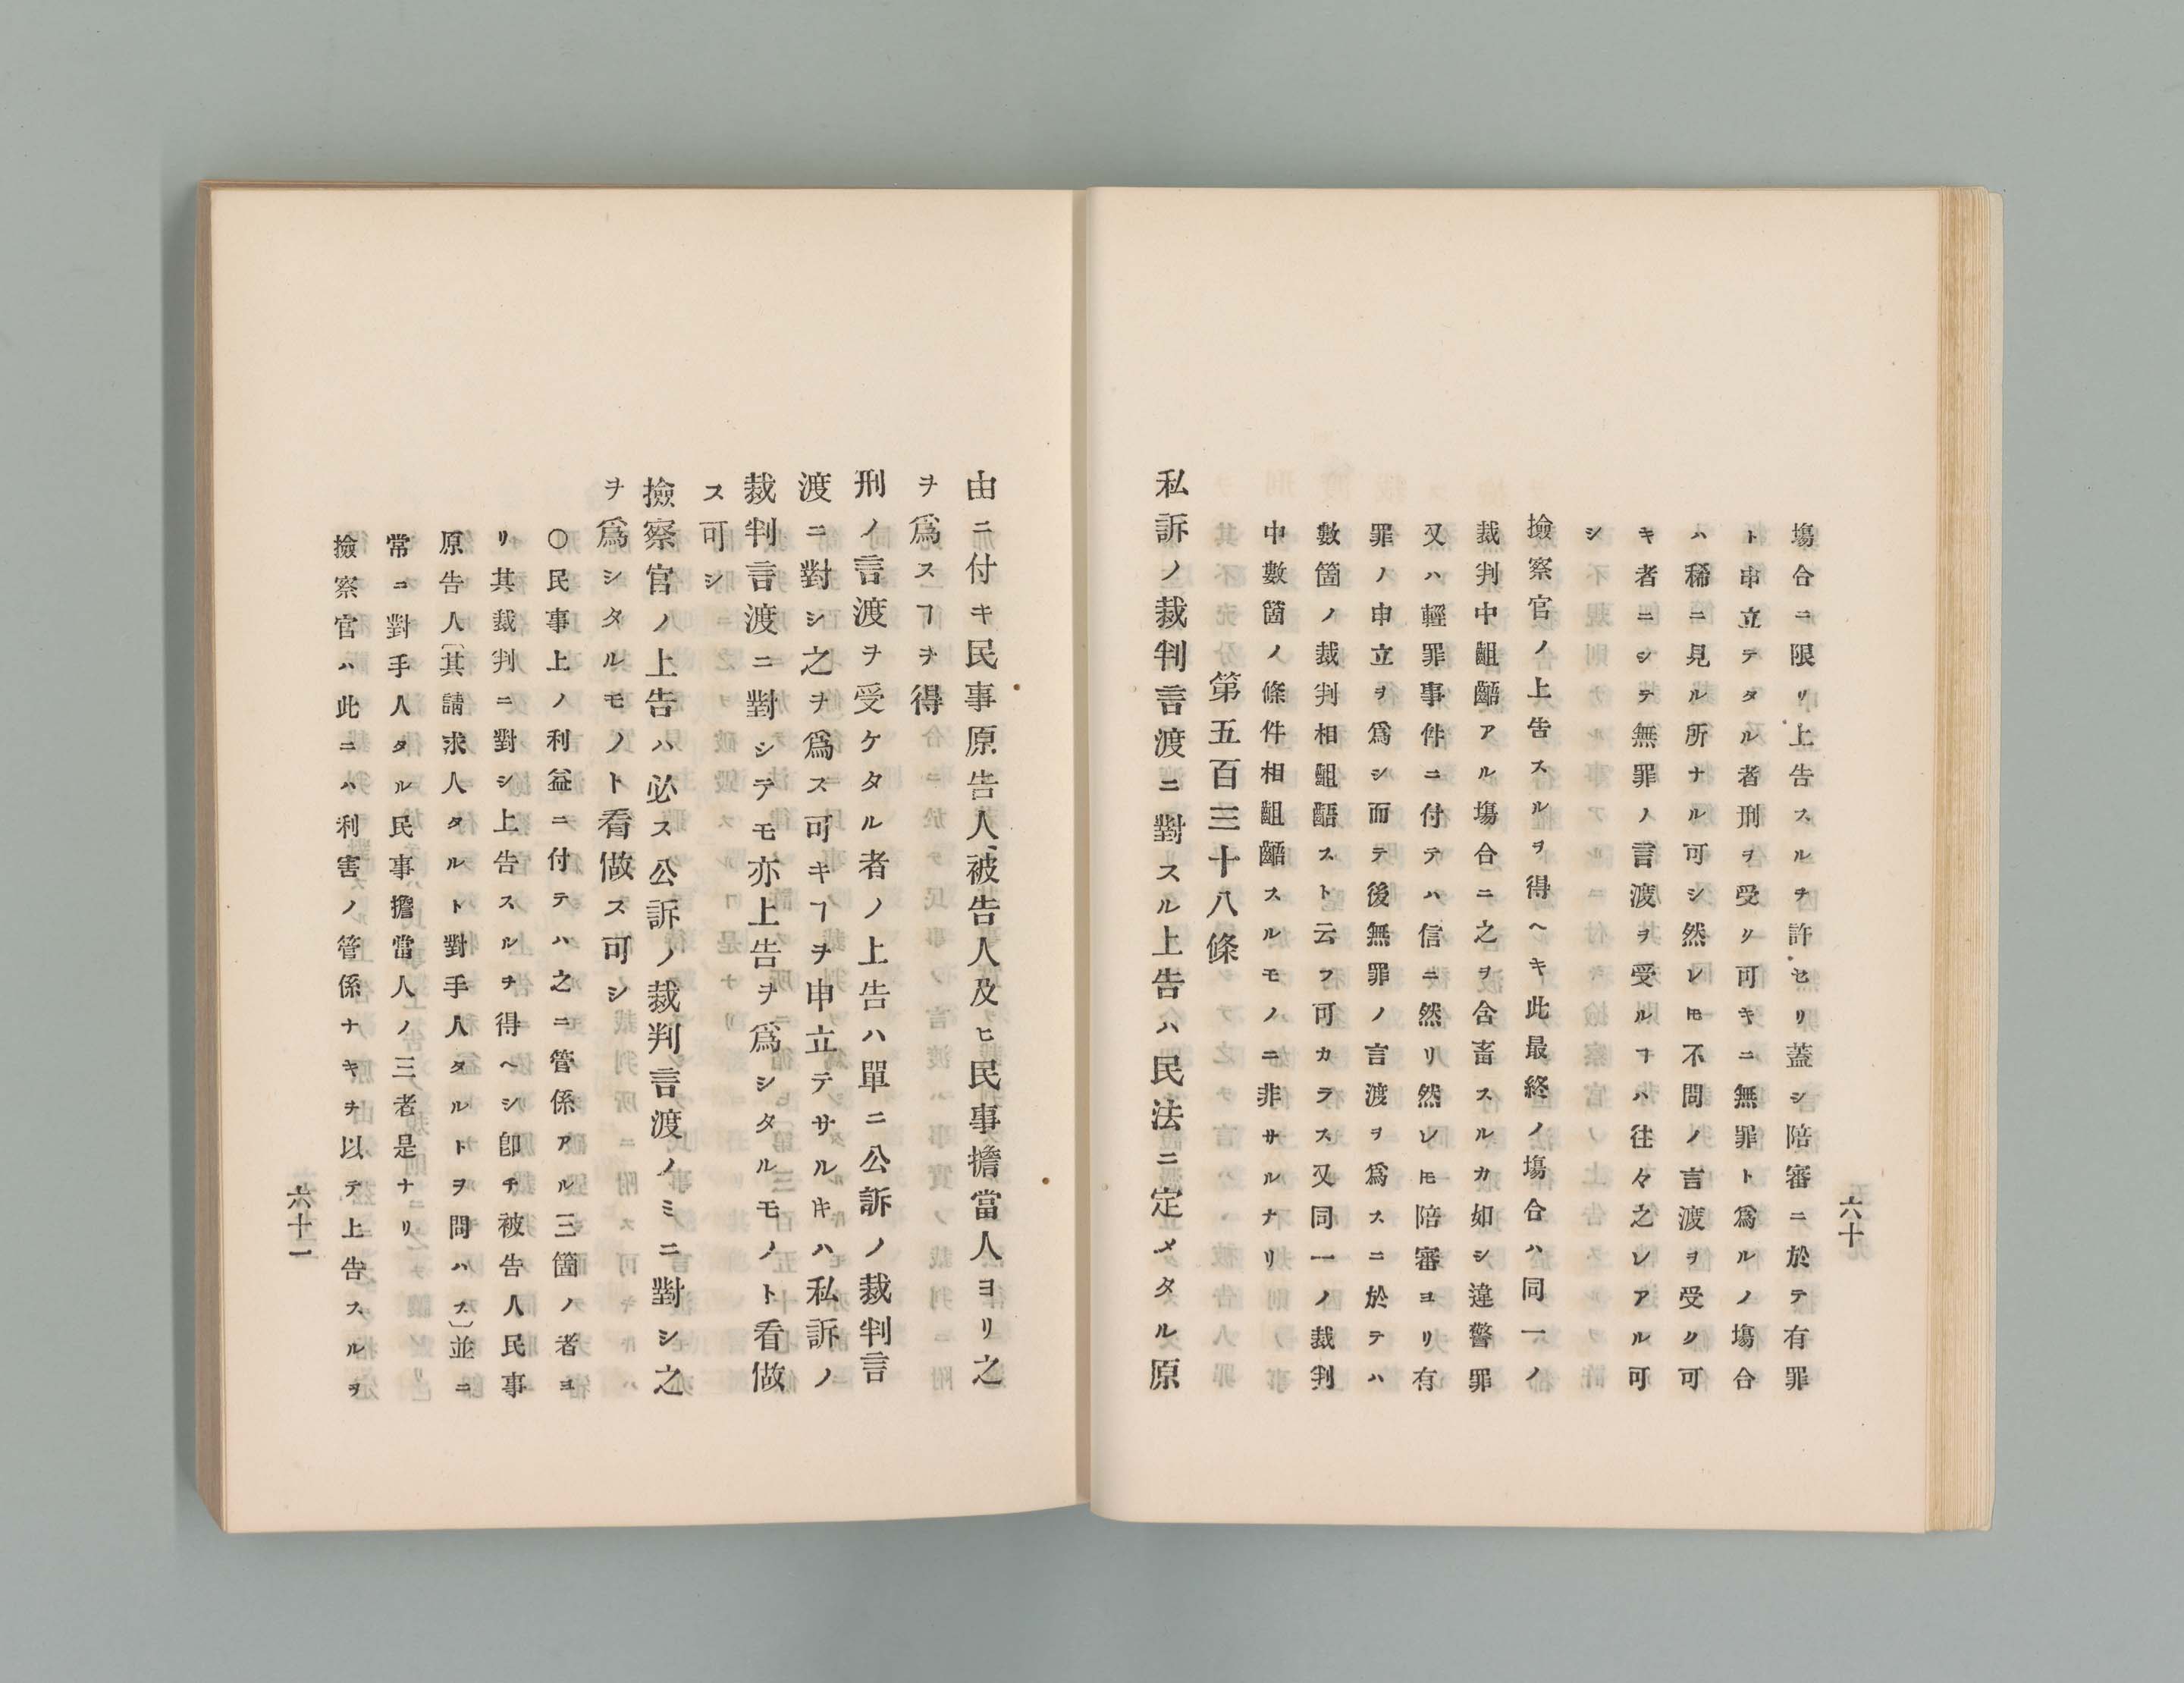 六十
塲合ニ限リ上告スルヲ許セリ蓋シ陪審ニ於テ有罪
ト申立テタル者刑ヲ受リ可キニ無罪ト爲ルノ塲合
ハ稀ニ見ル所ナル可シ然レ𪜈不問ノ言渡ヲ受ク可
キ者ニシテ無罪ノ言渡ヲ受ルヿハ往々之レアル可
シ
撿察官ノ上告スルヲ得ヘキ此最終ノ塲合ハ同一ノ
裁判中齟齬アル塲合ニ之ヲ含畜スルカ如シ違警罪
又ハ輕罪事件ニ付テハ信ニ然リ然レ𪜈陪審ヨリ有
罪ノ申立ヲ爲シ而テ後無罪ノ言渡ヲ爲スニ於テハ
數箇ノ裁判相齟齬スト云フ可カラス又同一ノ裁判
中數箇ノ條件相齟齬スルモノニ非サルナリ
第五百三十八條
私訴ノ裁判言渡ニ對スル上告ハ民法ニ定メタル原
由ニ付キ民事原告人、被告人及ヒ民事擔當人ヨリ之
ヲ爲スヿヲ得
刑ノ言渡ヲ受ケタル者ノ上告ハ單ニ公訴ノ裁判言
渡ニ對シ之ヲ爲ス可キヿヲ申立テサルキハ私訴ノ
裁判言渡ニ對シテモ亦上告ヲ爲シタルモノト看做
ス可シ
撿察官ノ上告ハ必ス公訴ノ裁判言渡ノミニ對シ之
ヲ爲シタルモノト看做ス可シ
〇民事上ノ利益ニ付テハ之ニ管係アル三箇ノ者ヨ
リ其裁判ニ對シ上告スルヲ得ヘシ卽チ被告人民事
原告人〔其請求人タルト對手人タルトヲ問ハス〕並ニ
常ニ對手人タル民事擔當人ノ三者是ナリ
撿察官ハ此ニハ利害ノ管係ナキヲ以テ上告スルヲ
六十一